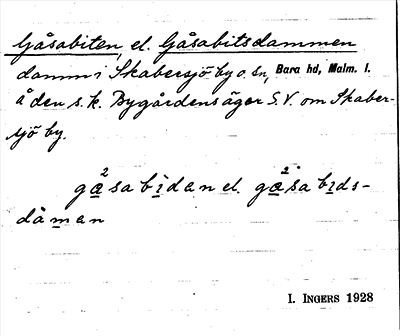 Gåsabiten, el. Gåsabitsdammen
damm i Skabersjö by o. sn, Bara hd, Malm. l.
å den s. k. Bygårdens ägor S.V. om Skaber-
sjö by.
gå²sabidan el. gå²sabids-
dåman
I. INGERS 1928